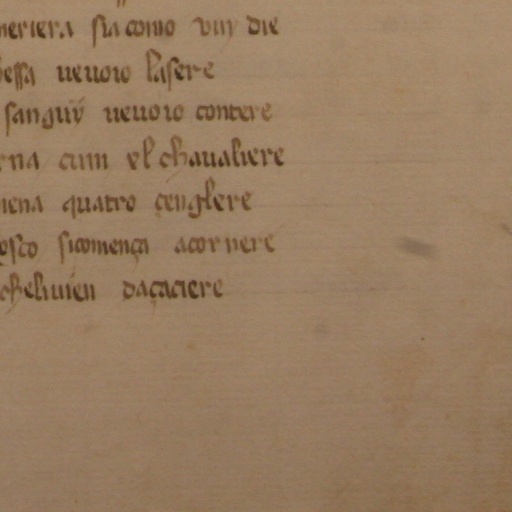 neriera sia como vuy die
essa ueuoio lasere
sanguy ueuoio contere
rna cum el chaualiere
mena quatro çenglere
osco sicomença acornere
cheliuien daçaciere